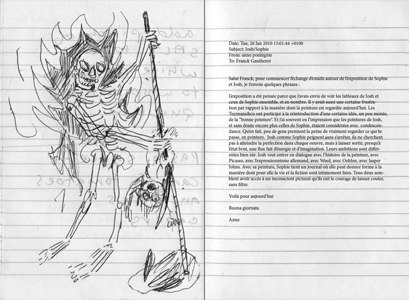 Date: Tue, 26 Jan 2010 15:01:44 +0100
Subject: Josh/Sophie
From: anne pontégnie
To: Franck Gautherot
Salut Franck, pour commencer l'échange d'emails autour de l'exposition de Sophie
et Josh, je t'envoie quelques phrases :
L'exposition a été pensée parce que j'avais envie de voir les tableaux de Josh et
ceux de Sophie ensemble, et en nombre. Il y avait aussi une certaine frustra-
tion par rapport à la manière dont la peinture est regardée aujourd'hui. Les
ont participé à la réintroduction d'une certaine idée, un peu moisie,
de la "bonne peinture". Et j'ai souvent eu l'impression que les peintures de Josh,
et sans doute encore plus celles de Sophie, étaient considérées avec condescen-
dance. Qu'en fait, peu de gens prennent la peine de vraiment regarder ce qui se
passe, en peinture. Josh comme Sophie peignent sans s'arrêter, ils ne cherchent
pas à atteindre la perfection dans chaque oeuvre, mais à laisser sortir, presqu'à
l'état brut, une flux fait d'énergie et d'imagination. Leurs ambitions sont différ-
entes bien sûr. Josh veut entrer en dialogue avec l'histoire de la peinture, avec
Picasso, avec l'expressionnisme allemand, avec Wool, avec Oehlen, avec Jasper
Johns. Avec sa peinture, Sophie tient un journal où elle peut donner forme à la
manière dont pour elle la vie et la fiction sont intimement liées. Tous deux sem-
blent avoir accès à un inconscient pictural qu'ils ont le courage de laisser couler,
sans filtre.
Voilà pour aujourd'hui
Buona giornata
Anne